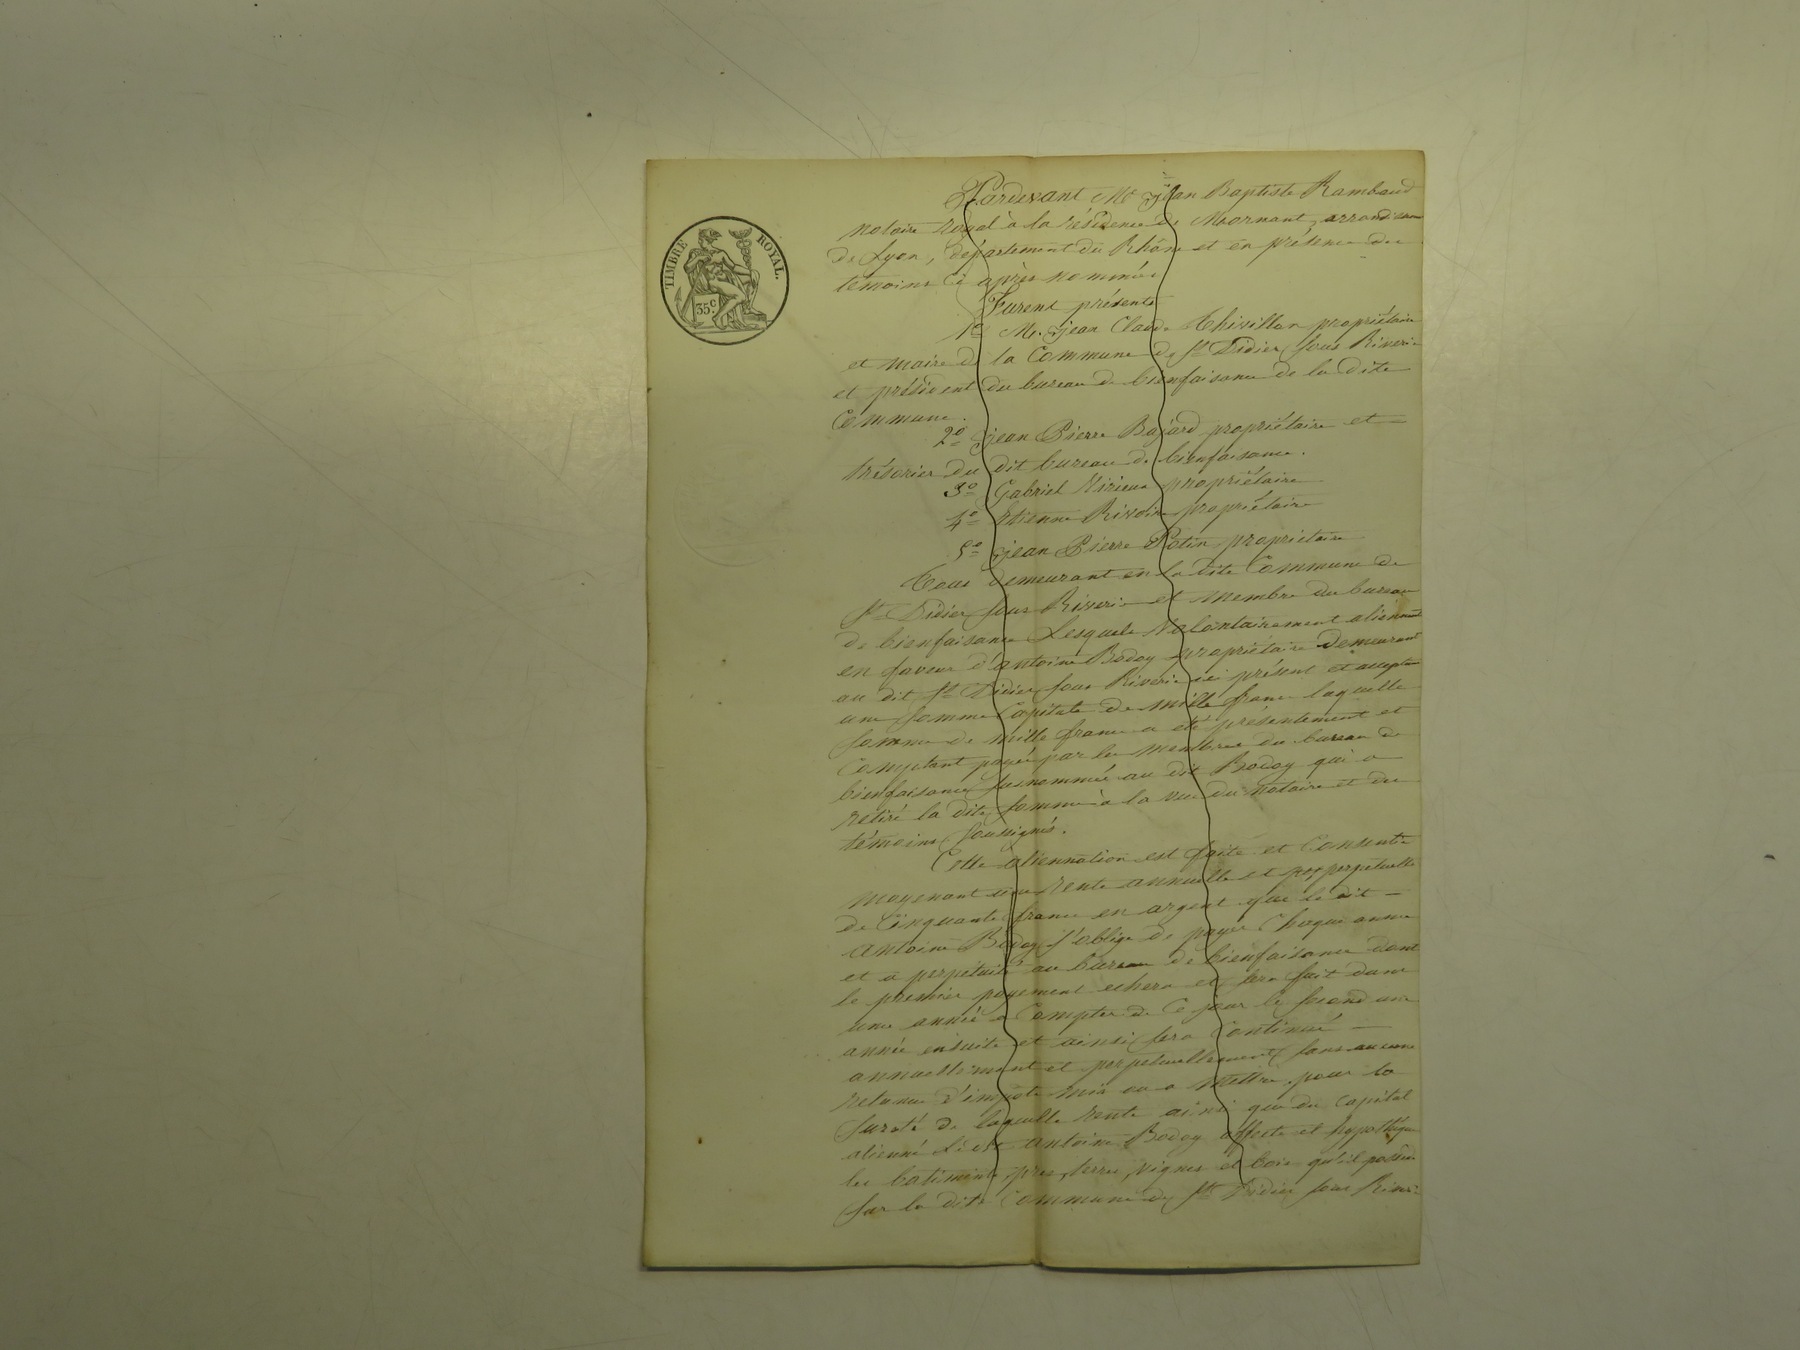 TIMBRE ROYAL.
35 c.
Pardevant Me Jean Baptiste Rambaud
Notaire Royal à la résidence de Mornant, arrondissem
de Lyon, département du Rhône et en présence des
témoins ci après nommés
Furent présents
1o Mr. Jean Claude Thivillon propriétaire
et maire de la Commune de St Didier sous Riverie
et président du bureau de bienfaisance de la dite
Commune.
2o Jean Pierre Bajard propriétaire et
trésorier du dit bureau de bienfaisance.
3o Gabriel propriétaire
4o Etienne Rivoire propriétaire
5o Jean Pierre propriétaire
Tous demeurant en la dite Commune de
St Didier sous Riverie et membre du bureau
de bienfaisance Lesquels Volontairement aliennent
en faveur d'antoine Bodoy propriétaire demeurant
au dit St Didier sous Riverie ici présent et acceptan
une somme Capitale de mille francs laquelle
somme de mille francs a été présentement et
Comptant payée par les Membres du bureau de
bienfaisance susnommés au dit Bodoy qui a
retiré la dite somme à la vue du Notaire et des
témoins soussignés.
Cette aliennation est faite et Consentie
moyenant une rente annuelle et perpetuelle
de Cinquante francs en argent que le dit
Antoine Bodoy s'oblige de payer Chaque année
et a perpétuité au bureau de bienfaisance dont
le premier payement echera et sera fait dans
une année a Compter de Ce jour le second une
année ensuite et ainsi sera Continué
annuellement et perpetuellement sans aucune
retenue d'impôts mis ou a mettre, pour la
sureté de laquelle rente ainsi que du Capital
alienné Ledit antoine Bodoy affecte et hypothèque
les batiments, pres, terres, vignes et bois qu'il possède
sur la dite Commune de St Didier sous Riverie